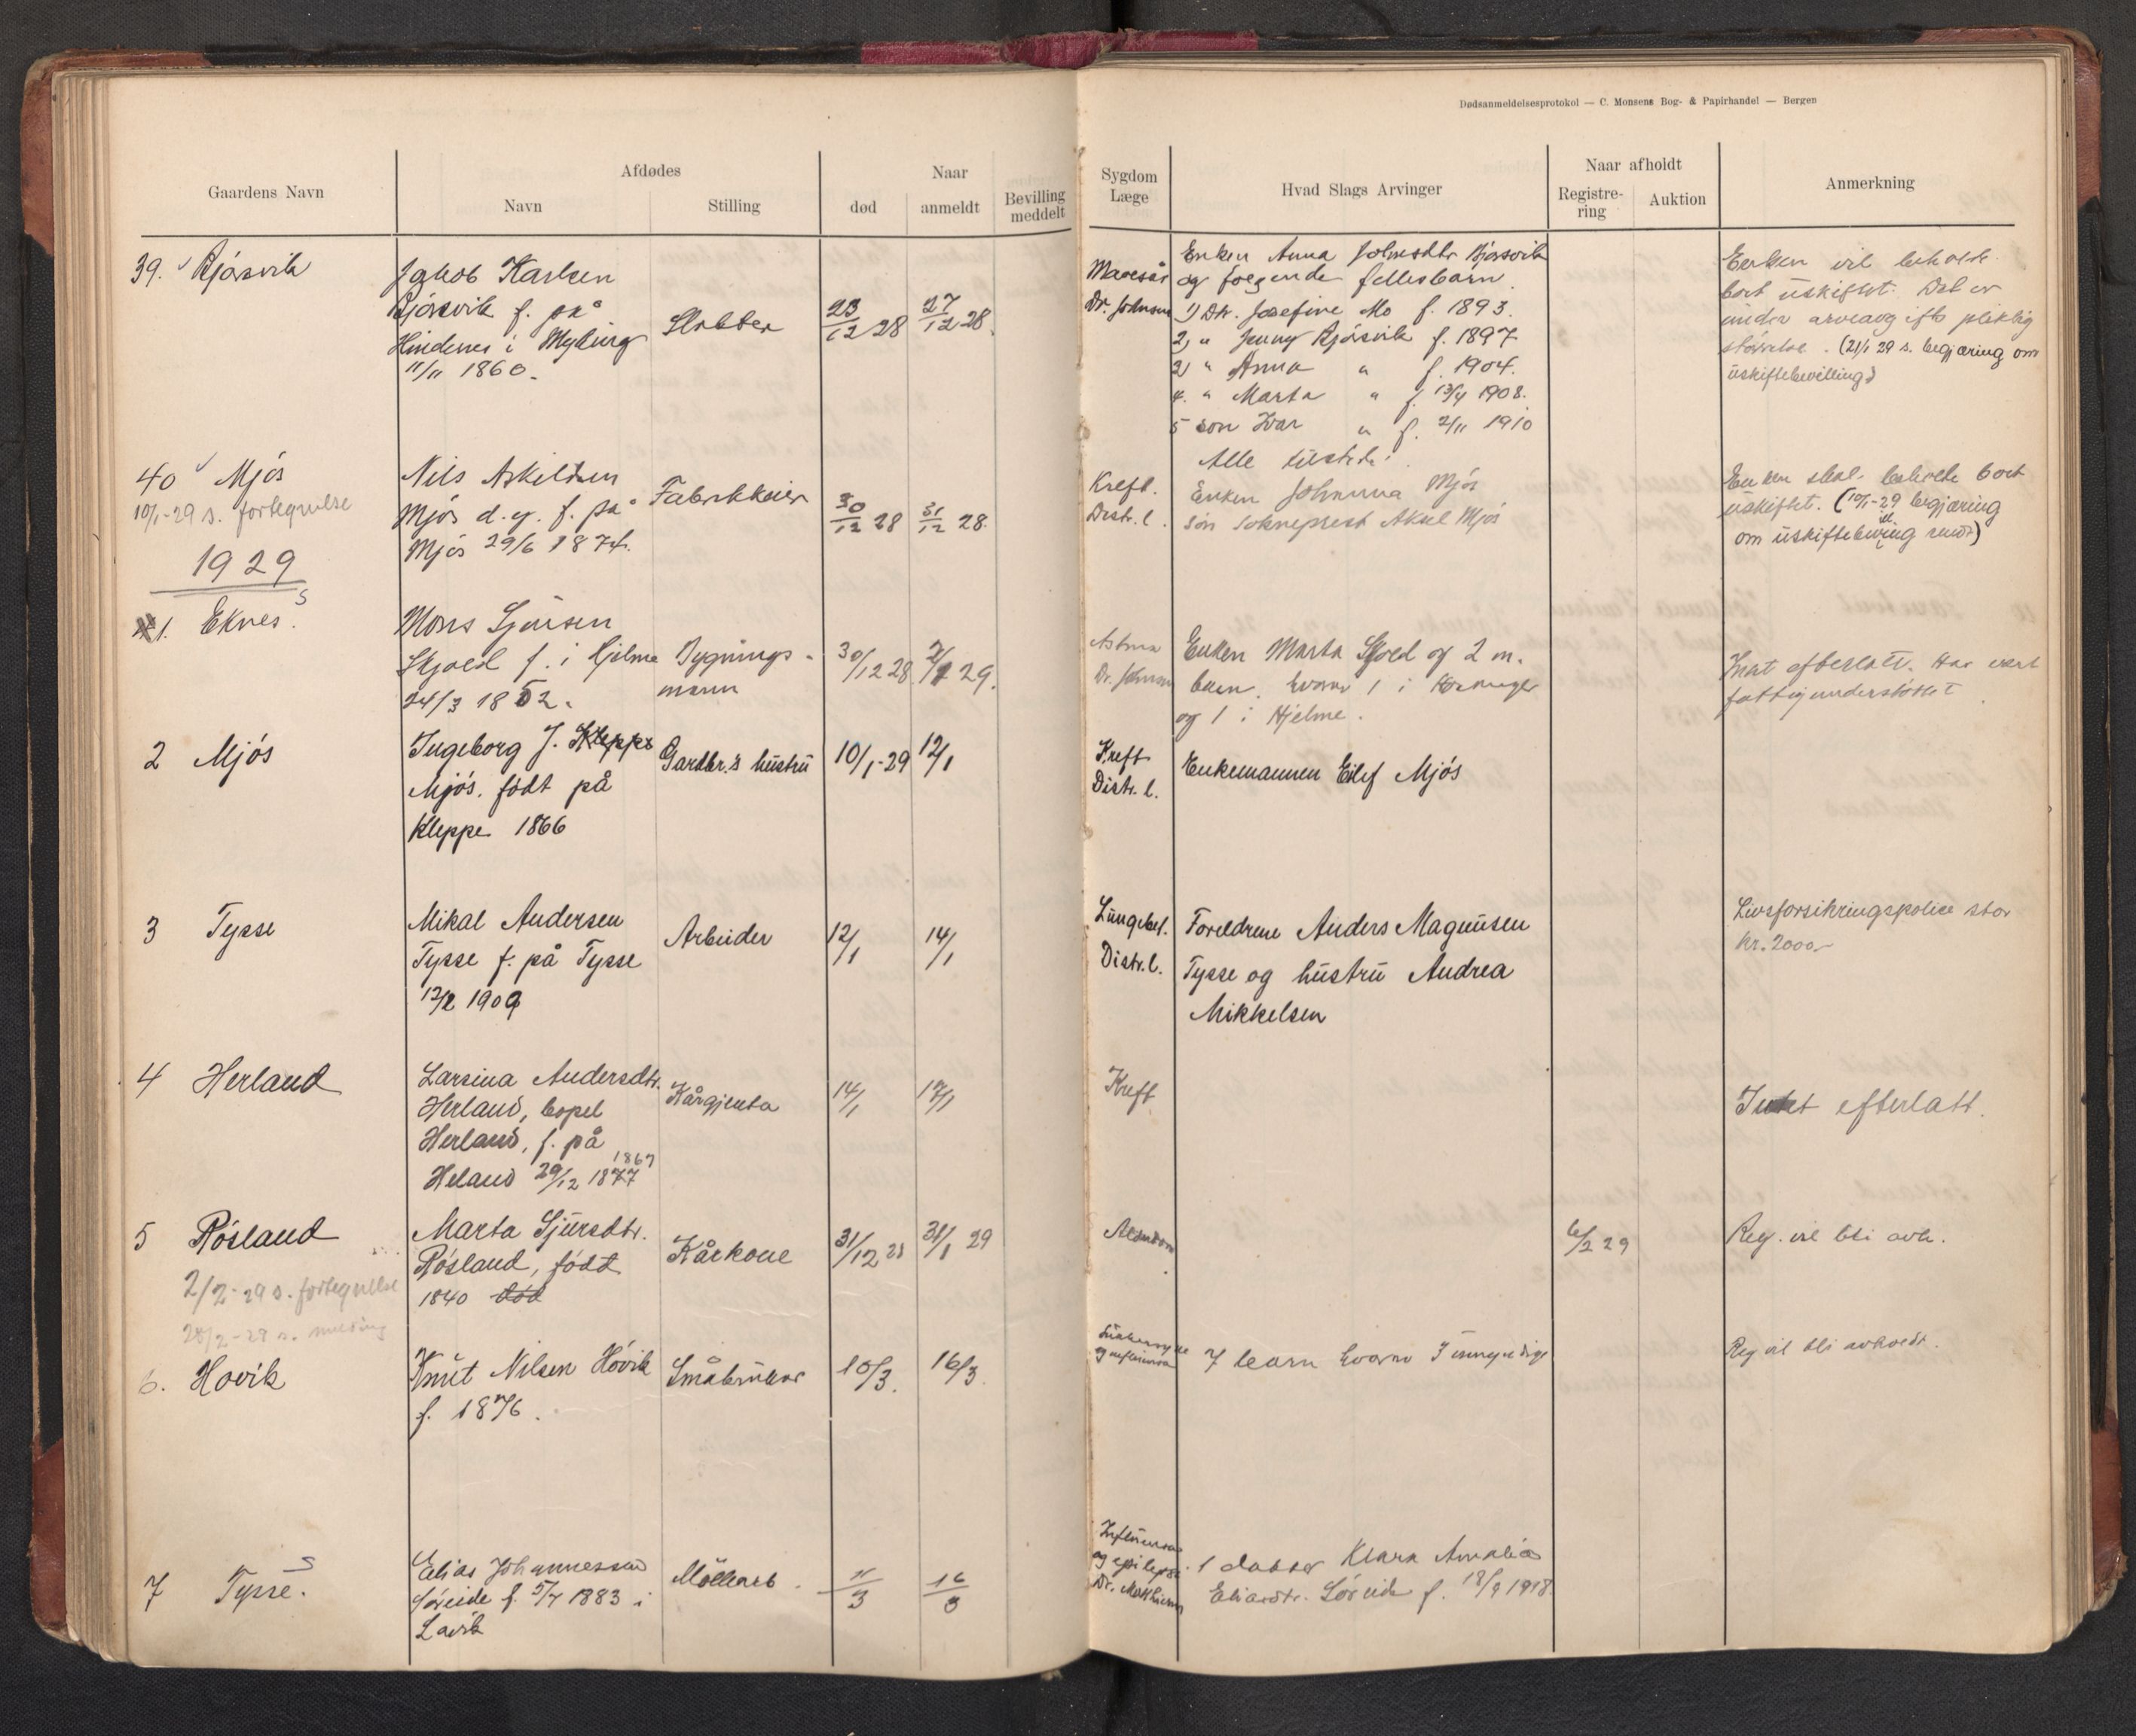 Dødsanmeldelsesprotokol — C. Monsens Bog- & Papirhandel — Bergen
Gaardens Navn
Afdødes
Navn
Stilling
Naar
død
anmeldt
Bevilling meddelt
Sygdom Læge
Hvad Slags Arvinger
Naar afholdt
Registrering
Auktion
Anmerkning
39. Bjórsvik
Jakob Karlsen
Bjórsvik f. på
Hindenes i Myking
11/11 1860.
Slakter
23/12 28
27/12 28.
Mavesår
Dr. Johnsen
Enken Anna Johnesdtr Bjórsvik
og følgende fellesbarn.
1) Dtr. Josefine Mo f. 1893.
2) " Jenny Bjórsvik f. 1897
3) " Anna " f. 1904.
4. " Marta " f. 13/4 1908.
5 son Ivar " f. 2/11 1910
Alle tilstede.
Enken vil beholde
bort uskiftet. Det er
under arveavgifts pliktig
størrelse. (21/1 29 s. begjæring om
uskiftebevilling)
40 Mjós
10/1-29 s. fortegnelse
Nils Askildsen
Mjós d.y. f. på
Mjós 29/6 1874.
Fabrikkeier
30/12 28
31/12 28.
Kreft.
Distr. l.
Enken Johanna Mjós
Són Sokneprest Aksel Mjós
Enken skal beholde bort
uskiftet. (10/1-29 begjæring
om uskiftebevilling sendt)
1929
1. Eknes. s
Mons Sjursen
Skjold f. i Hjelme
24/3 1852.
Bygningsmann
30/12 28
2/1 29.
Astma
Dr. Johnsen
Enken Marta Skjold og 2 m.
barn. hvorav 1 i
og 1 i Hjelme.
Intet efterlatt. Har vært
fattigunderstóttet
2 Mjós
Ingeborg J. Kleppe
Mjós. fódt på
Kleppe 1866
Gardbr.'s hustru
10/1-29
12/1
Kreft
Distr. l.
Enkemannen Eilef Mjós
3 Tysse
Mikal Andersen
Tysse f. på Tysse
12/2 1909
Arbeider
12/1
14/1
Lungebet.
Distr. l.
Foreldrene Anders Magnusen
Tysse og hustru Andrea
Mikkelsen
Livsforsikringspolice stor
kr. 2000.-
4 Herland
Larsina Andersdtr.
Herland, bopel
Herland, f. på
Heland 29/12 1877
1867
Kårgjenta
14/1
17/1
Kreft
Intet efterlatt.
5 Rósland
2/2-29 s. fortegnelse
28/2-29 s. melding
Marta Sjursdtr.
Rósland, fódt
1840 dód
Kårkone
31/12 28
31/1 29
Alderdom
6/2 29
Reg. vil bli avh.
6. Hovik
Knut Nilsen Hóvik
f. 1876.
Småbruker
10/3.
16/3.
Sukkersyke
og influensa
7 barn hvorav 5 umyndige
Reg vil bli avholdt.
7 Tysse. s
Elias Johannessen
Sóreide f. 5/4 1883 i
Lavik
Móllearb.
11/3
16/3
Influensa
og epilepsi.
Dr. Matthiesen
1 datter Klara Amalia
Eliasdtr. Sóreide f. 18/9 1918